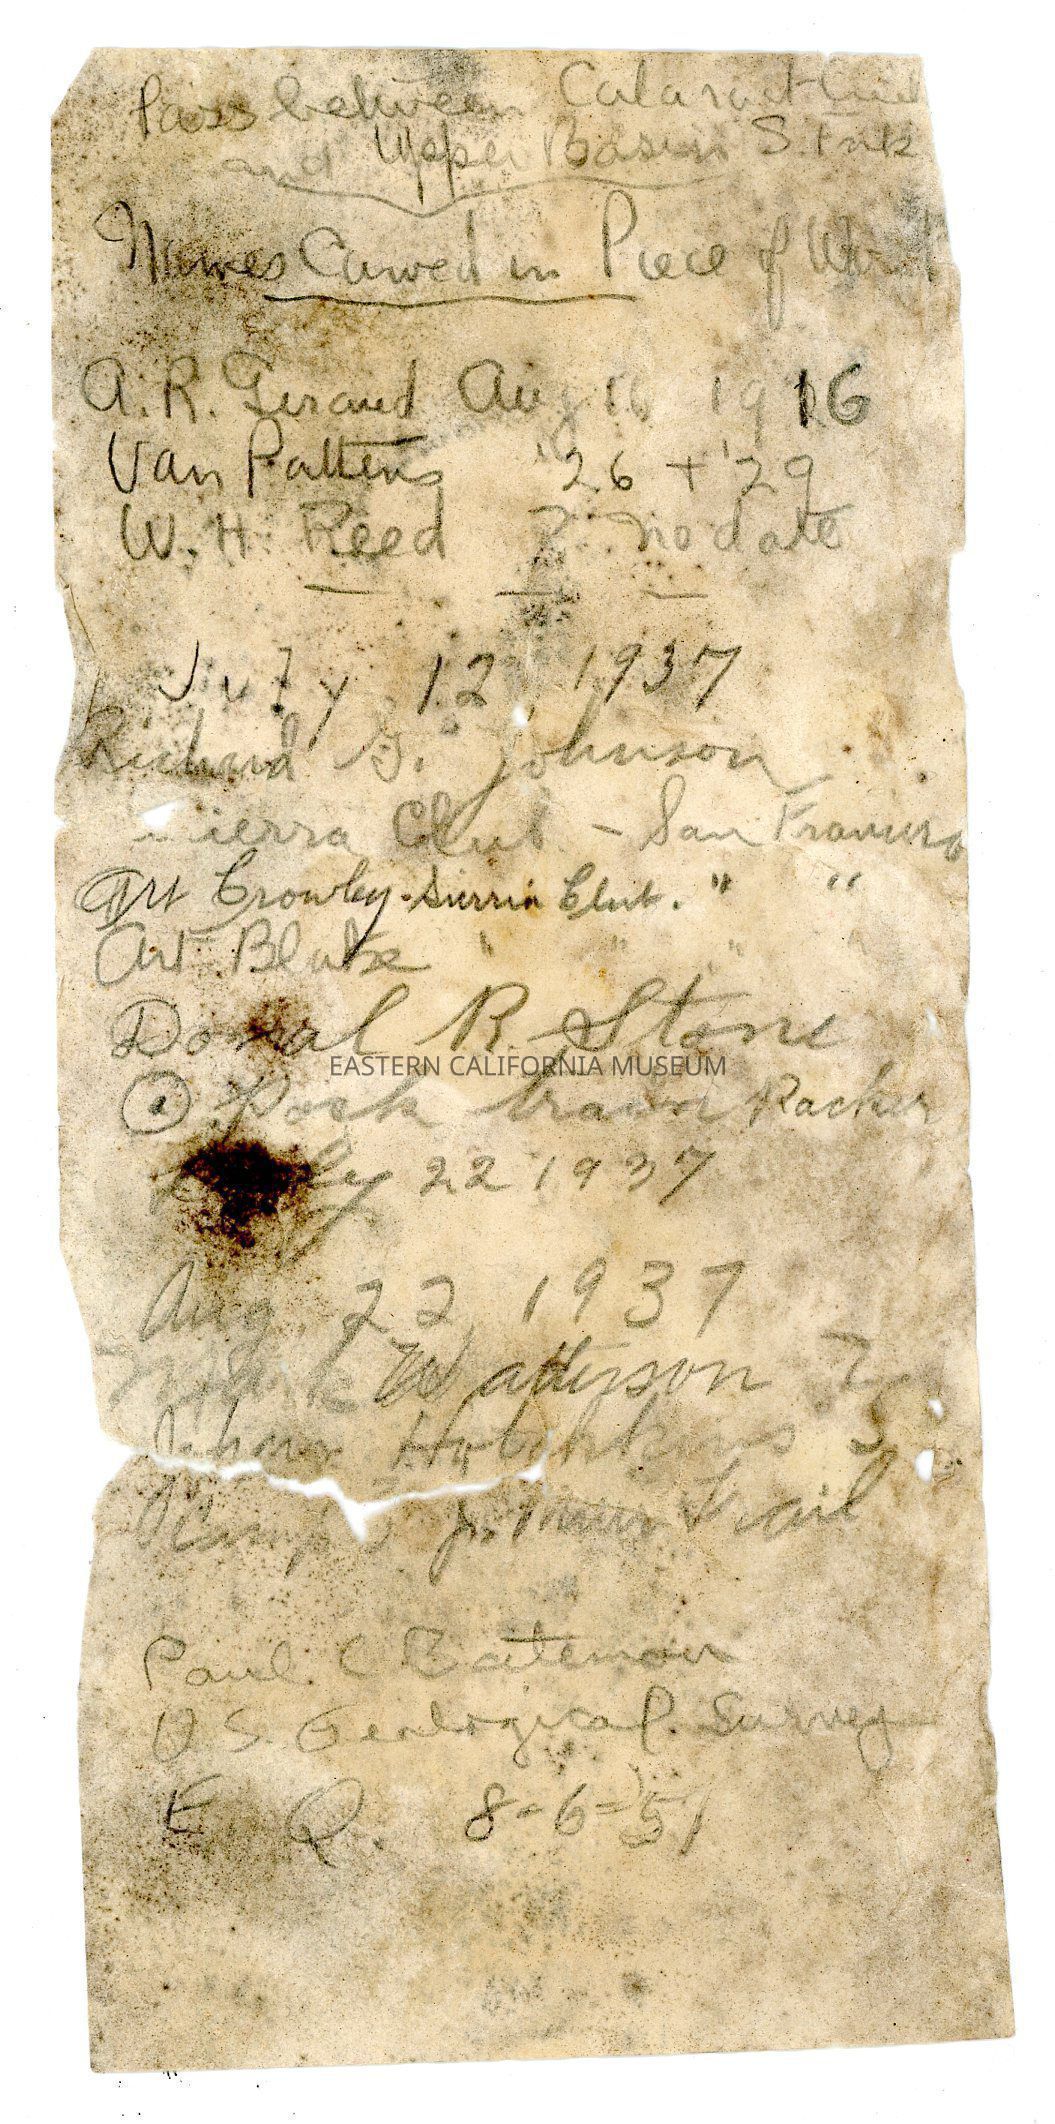 Pass between Cataract Creek
and Upper Basin S. Fork
Names Carved in Piece of
A. R. Giraud Aug 16 1916
Van Pattens '26 + '29
W. H. Reed ? no date
July 12, 1937
Richard G. Johnson
Sierra Club - San Francisco
Art Crowley - Sierra Club. " "
Art Blake " " " "
Donal R. Stone
EASTERN CALIFORNIA MUSEUM
Pack train Packer
July 22 1937
Aug. 22, 1937
Watterson
J. Muir Trail
Paul C Bateman
U S. Geological Survey
E. Q. 8-6-51